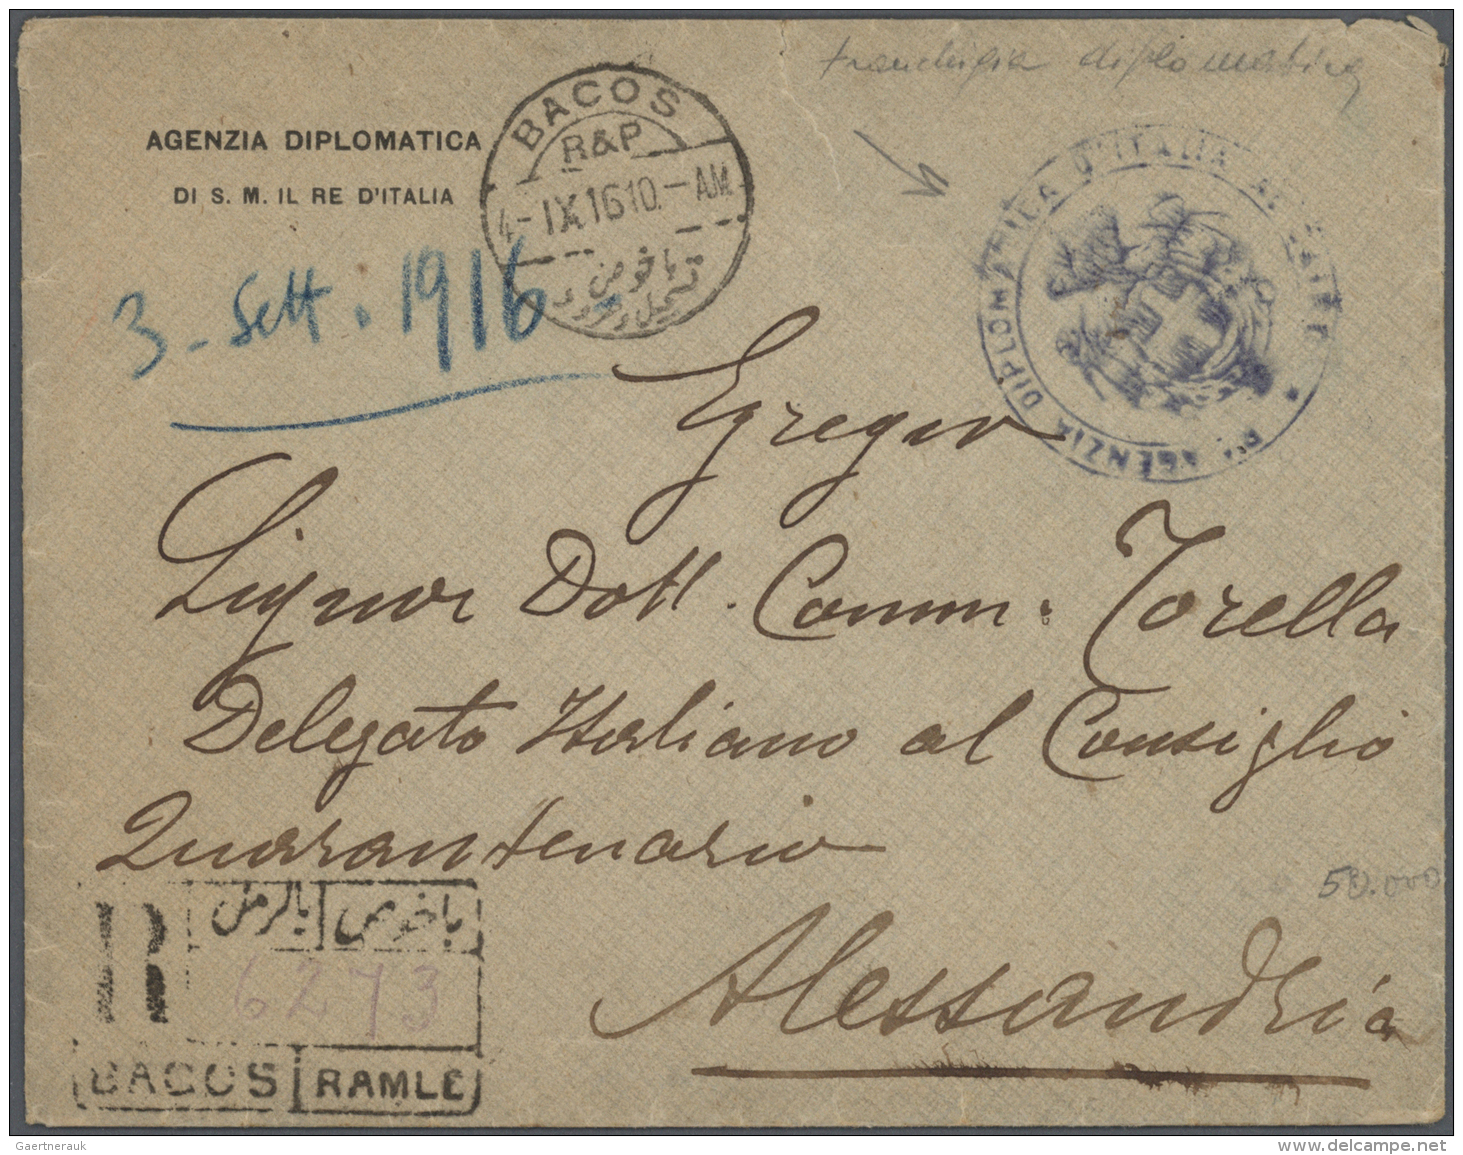 franchigia diplomatica
AGENZIA DIPLOMATICA
DI S. M. IL RE D'ITALIA
BACOS
R&P
4-IX.16 10.-AM.
باخوص
3 - Sett. 1916
Rª AGENZIA DIPLOMATICA D'ITALIA
Egregio
Signor Dott. Comm. Torella
Delegato Italiano al Consiglio
Quarantenario
Alessandria
50.000
R
بالرمل باخوص
6273
BACOS RAMLE
Gaertnerauk
www.delcampe.net